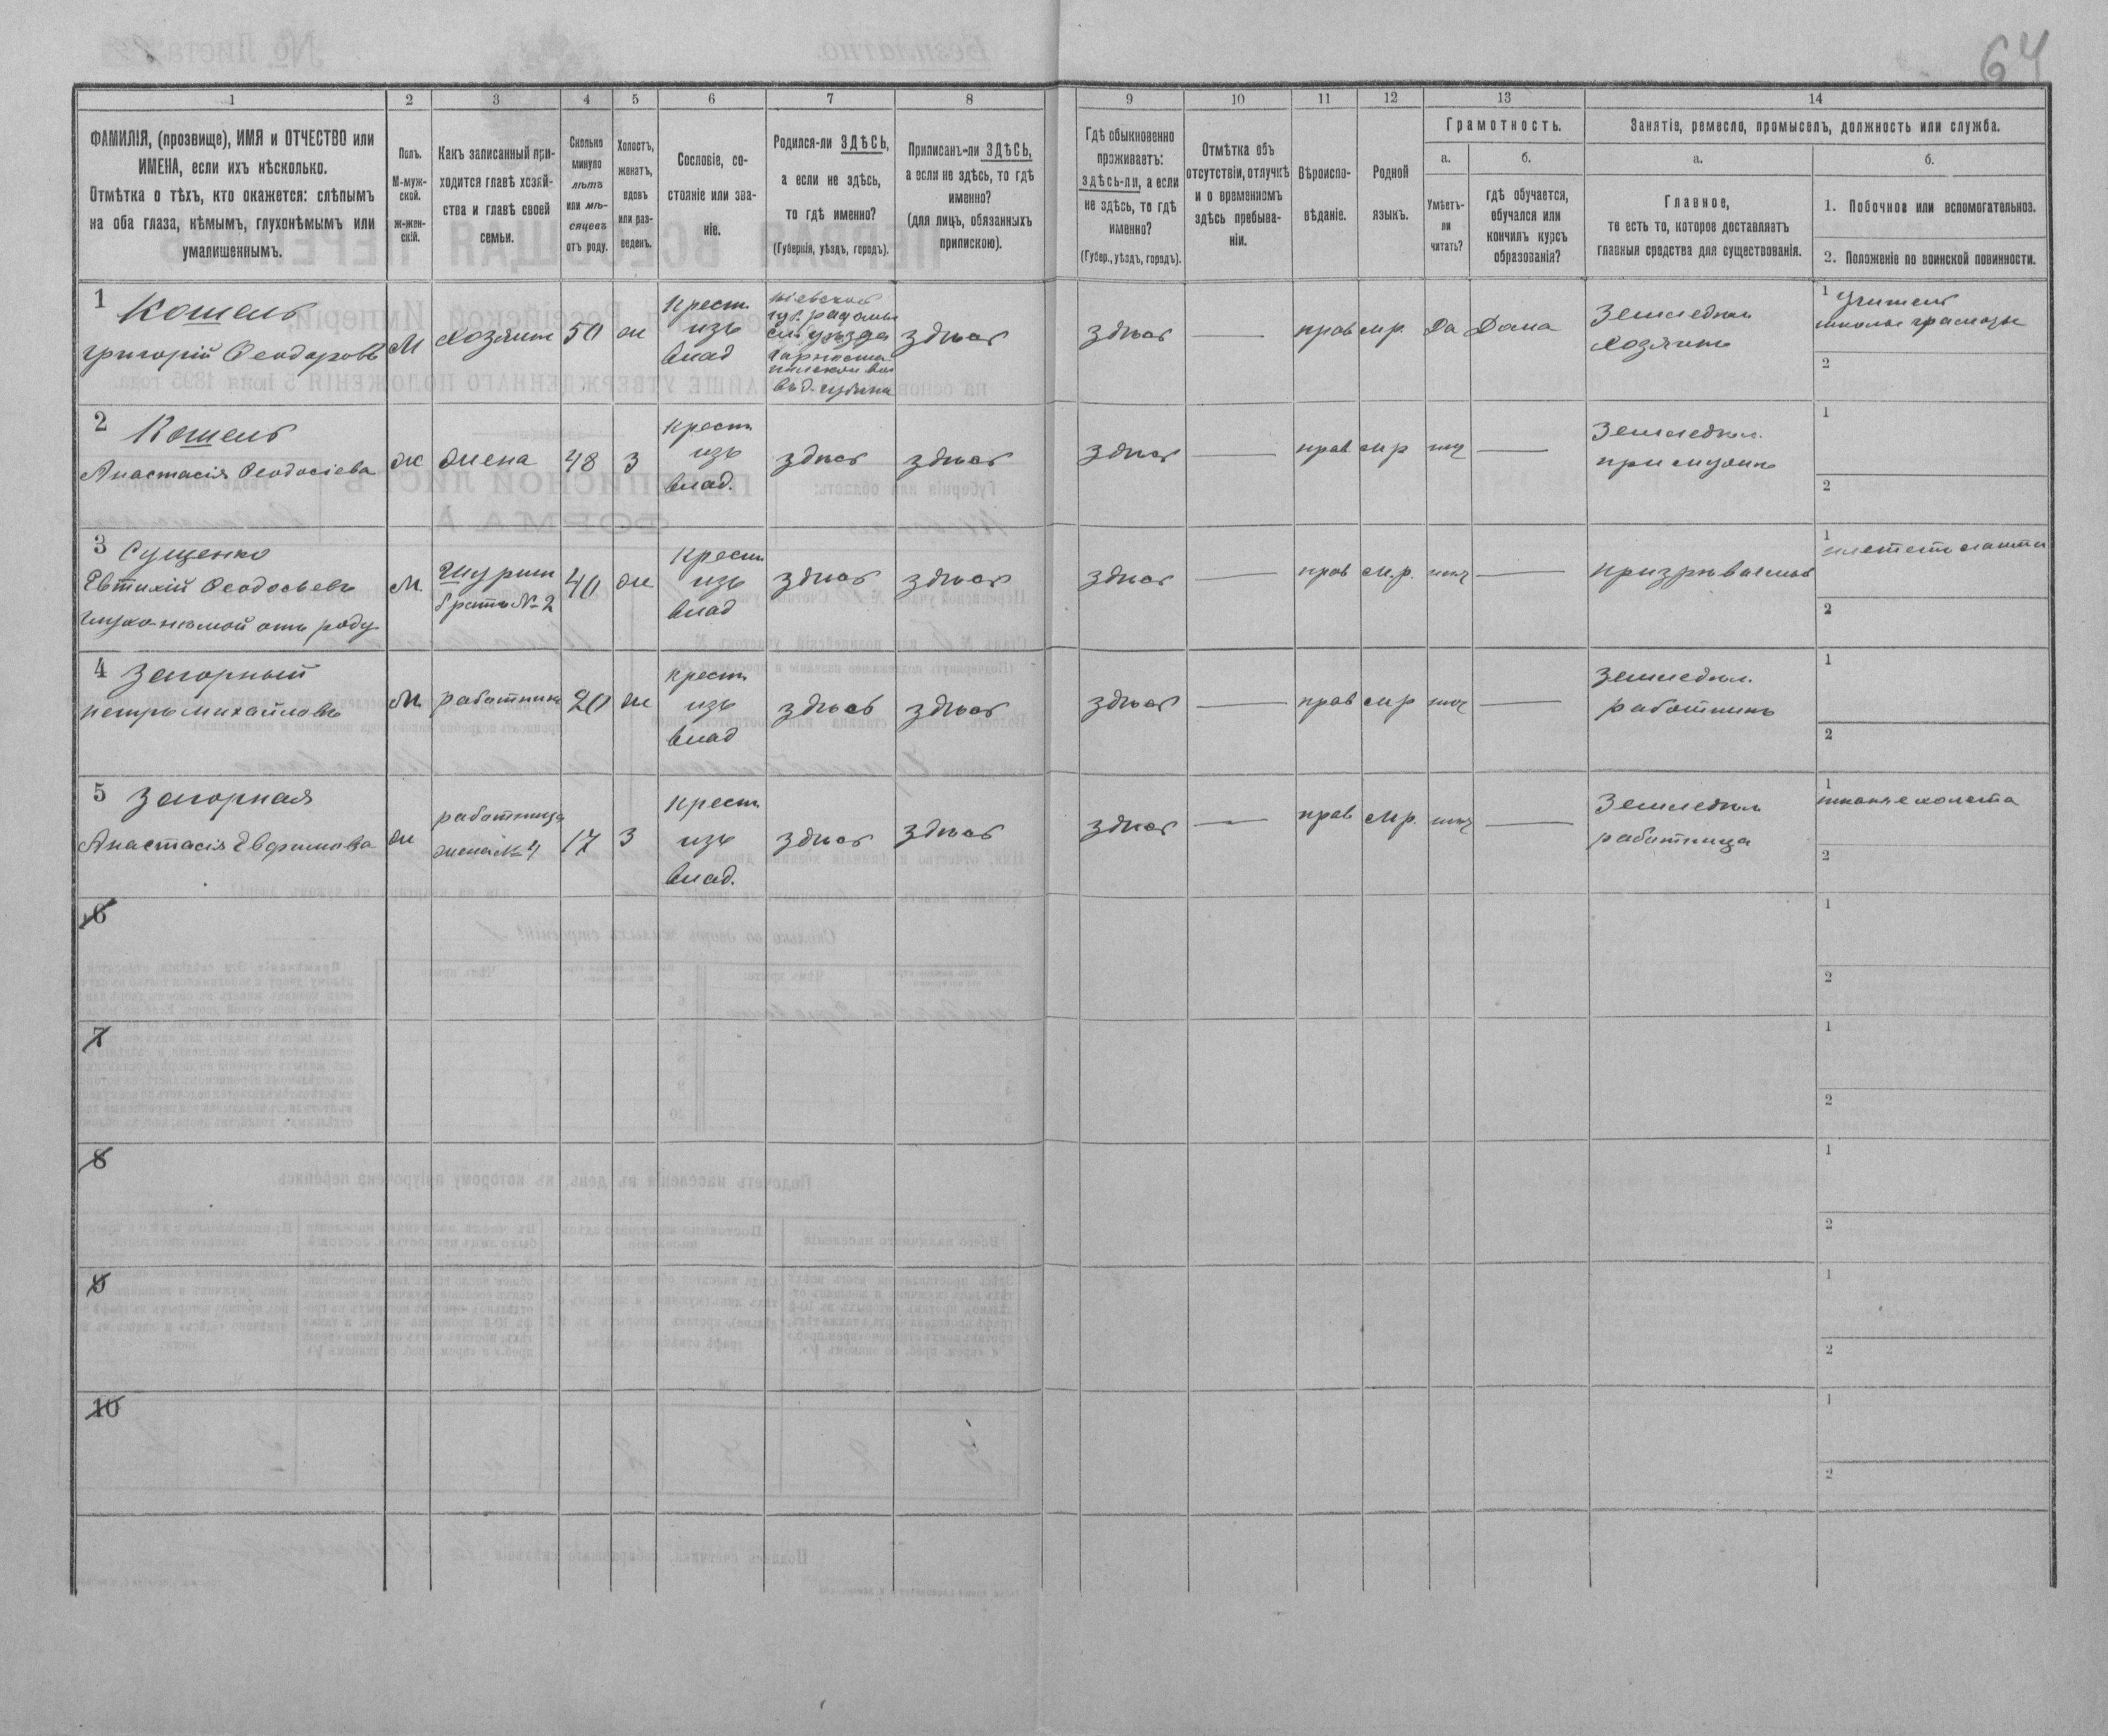 64
1 2 3 4 5 6 7 8 9 10 11 12 13 14
ФАМИЛІЯ, (прозвище), ИМЯ и ОТЧЕСТВО или
ИМЕНА, если ихъ нѣсколько.
Отмѣтка о тѣхъ, кто окажется: слѣпымъ
на оба глаза, нѣмымъ, глухонѣмымъ или
умалишеннымъ.
Полъ.
М-муж-
ской.
ж-жен-
скій.
Какъ записанный при-
ходится главѣ хозяй-
ства и главѣ своей
семьи.
Сколько
минуло
лѣтъ
или мѣ-
сяцевъ
отъ роду.
Холостъ,
женатъ,
вдовъ
или раз-
веденъ.
Сословіе, со-
стояніе или зва-
ніе.
Родился-ли ЗДѢСЬ,
а если не здѣсь,
то гдѣ именно?
(Губернія, уѣздъ, городъ).
Приписанъ-ли ЗДѢСЬ,
а если не здѣсь, то гдѣ
именно?
(для лицъ, обязанныхъ
припискою).
Гдѣ обыкновенно
проживаетъ:
здѣсь-ли, а если
не здѣсь, то гдѣ
именно?
(Губер., уѣздъ, городъ).
Отмѣтка объ
отсутствіи, отлучкѣ
и о временномъ
здѣсь пребыва-
ніи.
Вѣроиспо-
вѣданіе.
Родной
языкъ.
Грамотность.
а.
Умѣетъ-
ли
читать?
б.
гдѣ обучается,
обучался или
кончилъ курсъ
образованія?
Занятіе, ремесло, промыселъ, должность или служба.
а.
Главное,
то есть то, которое доставляетъ
главныя средства для существованія.
б.
1. Побочное или вспомогательное.
2. Положеніе по воинской повинности.
1 Кошель
Григорій Ѳеодоровъ
М
хозяинъ
50
ж
Крест.
изъ
влад
Кіевской
губ. Радомы
сл. уѣзда
въ д. Губина
здѣсь
здѣсь
—
прав
мр.
Да
Дома
Земледѣл
хозяинъ
1 Учитель
школы грамоты
2
2 Кошель
Анастасія Ѳеодосіева
ж
жена
48
з
крест.
изъ
влад.
здѣсь
здѣсь
здѣсь
—
прав
мр
—
Земледѣл.
при мужѣ
1
2
3 Сущенко
Евтихій Ѳеодосьевъ
глухо-нѣмой отъ роду
М.
Шурин
братъ № 2
40
ж
крест
изъ
влад
здѣсь
здѣсь
здѣсь
—
прав
м.р.
—
призрѣваемый
1 плететъ лапти
2
4 Загорный
Петръ Михайловъ
М.
работникъ
20
ж
крест
изъ
влад
здѣсь
здѣсь
здѣсь
—
прав
мр
—
Земледѣл.
работникъ
1
2
5 Загорная
Анастасія Евфимова
ж
работница
жена № 4
17
з
крест
изъ
влад.
здѣсь
здѣсь
здѣсь
—
прав
мр.
—
Земледѣл
работница
1 тканье холста
2
6
1
2
7
1
2
8
1
2
9
1
2
10
1
2